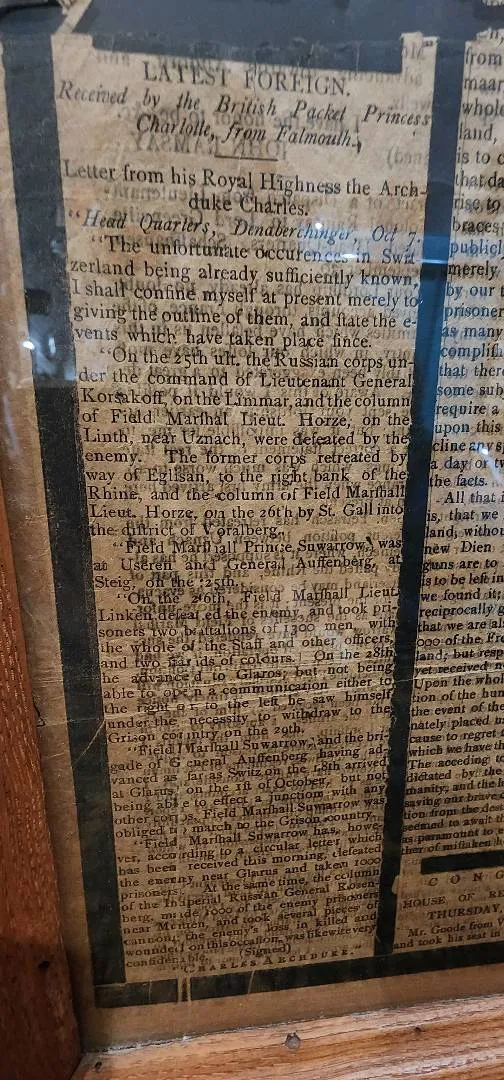 LATEST FOREIGN.
Received by the British Packet Princess
Charlotte, from Falmouth.
Letter from his Royal Highness the Arch-
duke Charles.
"Head Quarters, Dendberchinger, Oct 7.
"The unfortunate occurences in Swit
zerland being already sufficiently known,
I shall confine myself at present merely to
giving the outline of them, and state the e-
vents which have taken place since.
"On the 25th ult, the Russian corps un-
der the command of Lieutenant General
Korsakoff, on the Limmar, and the column
of Field Marshal Lieut. Horze, on the
Linth, near Uznach, were defeated by the
enemy. The former corps retreated by
way of Eglisan, to the right bank of the
Rhine, and the column of Field Marshall
Lieut. Horze, on the 26th by St. Gall into
the district of Voralberg.
"Field Marshall Prince Suwarrow was
at Useren and General Auffenberg, at
Steig, on the 25th.
"On the 26th, Field Marshall Lieut
Linken defeated the enemy, and took pri-
soners two battallions of 1300 men, with
the whole of the Staff and other officers,
and two stands of colours. On the 28th
he advanced to Glaros; but not being
able to open a communication either to
the right or to the left he saw himself
under the necessity to withdraw to the
Grison country on the 29th.
"Field Marshall Suwarrow, and the bri-
gade of General Auffenberg, having ad-
vanced as far as Switz on the 28th arrived
at Glarus, on the 1st of October, but not
being able to effect a junction with any
other corps, Field Marshall Suwarrow was
obliged to march to the Grison country.
"Field Marshall Suwarrow has, howe-
ver, according to a circular letter which
has been received this morning, defeated
the enemy near Glarus and taken 1000
prisoners. At the same time, the column
of the Imperial Russian General Rosen-
berg, made 1000 of the enemy prisoners
near Mutten, and took several pieces of
cannon; the enemy's loss in killed and
wounded on this occasion, was likewise very
considerable. (Signed)
"CHARLES ARCHDUKE."
from
maar
whole
land,
is to c
that da
rise, to
braces
publicl
merely
by our t
prisoner
as many
complish
that there
some sub
require a
upon this
cline any s
a day or tw
the facts.
All that i
is, that we
land, withou
new Dien
guns are to
is to be left in
we found it;
reciprocally g
that we are als
000 of the Fre
land; but resp
yet received n
Upon the whol
tion of the hun
the event of the
nately placed in
cause to regret t
which we have th
The acceding to
dictated by the
manity, and the l
saving our brave c
tion from the des
seemed to await th
as paramount to
ther of mistaken h
CONG
HOUSE OF RE
THURSDAY,
Mr. Goode from V
and took his seat in